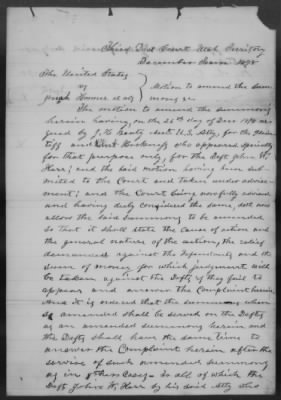 Third Dist Court Utah Territory
December Term 1878
The United States
vs Motion to amend the sum-
Joseph Horner et al mons &c
The motion to amend the summons
herein having, on the 26th day of Dec 1878 ar-
gued by J. H. Beatty Asst U.S. Atty, for the plain
tiff and who appeared specially
for that purpose only, for the Deft John W.
Harr; and the said motion having been sub-
mitted to the Court and taken under advise
ment; and the Court being now fully advised
and having duly considered the same, doth now
allow the said Summons to be amended
So that it shall state the cause of action and
the general nature of the action, the relief
demanded against the Defendants and the
sum of money for which judgment will
be taken against the Defts if they fail to
appear and answer the Complaint herein
And it is ordered that the summons when
so amended shall be served on the Defts
as an amended summons herein and
the Defts shall have the same time to
answer the Complaint herein after the
service of such amended summons
as in other cases - to all of which the
Deft John W. Harr by his said Atty